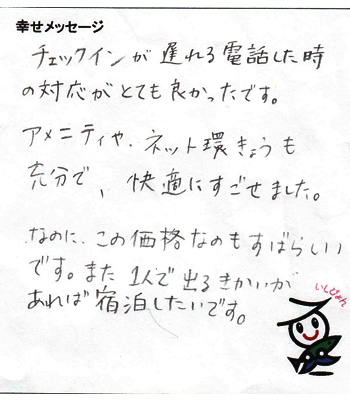 幸せメッセージ
チェックインが遅れる電話した時
の対応がとても良かったです。
アメニティや、ネット環きょうも
充分で、快適にすごせました。
なのに、この価格なのもすばらしい
です。また1人で出るきかいが
あれば宿泊したいです。
いしぴょん